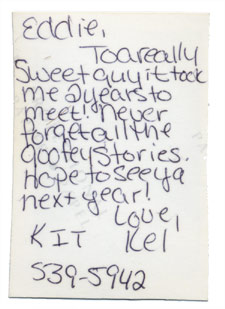 Eddie,
To a really
Sweet guy it took
me 2 years to
meet! Never
forget all the
goofey stories.
hope to see ya
next year!
Love,
KIT Kel
539-5942